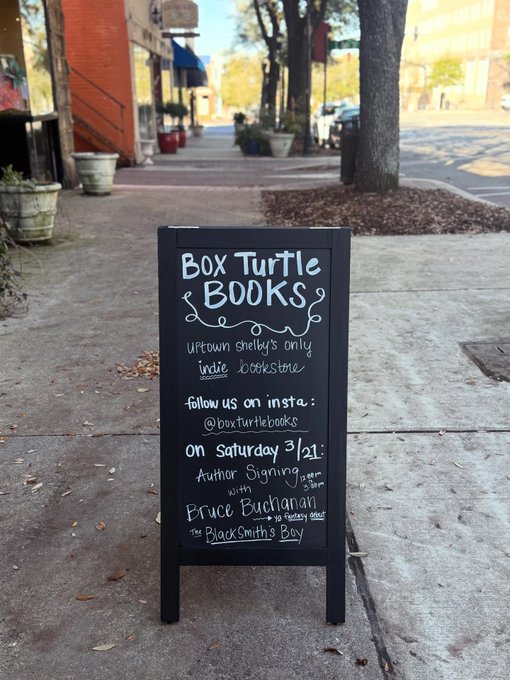 Box Turtle
BOOKS
uptown shelby's only
indie bookstore
follow us on insta:
@boxturtlebooks
on Saturday 3/21:
Author Signing 12:00 pm
to 3:00 pm
with
Bruce Buchanan
→ ya fantasy debut
The BlackSmith's Boy